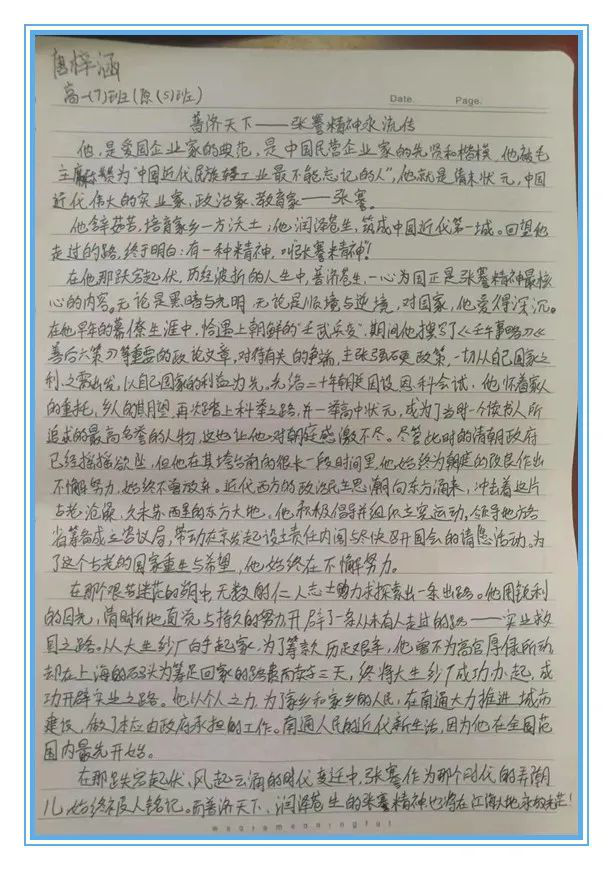 唐梓涵
高一(7)班(原(5)班)
Date. Page.
善济天下——张謇精神永流传
他,是爱国企业家的典范,是中国民营企业家的先贤和楷模,他被毛
主席称赞为“中国近代民族轻工业最不能忘记的人”,他就是清末状元,中国
近代伟大的实业家,政治家,教育家——张謇。
他含辛茹苦,培育家乡一方沃土;他润泽苍生,筑成中国近代第一城。回望他
走过的路,终于明白:有一种精神,叫张謇精神!
在他那跌宕起伏,历经波折的人生中,善济苍生,一心为国正是张謇精神最核
心的内容。无论是黑暗与光明,无论是顺境与逆境,对国家,他爱得深沉。
在他早年的幕僚生涯中,恰遇上朝鲜的“壬武兵变”,期间他撰写了《壬午事略》《
善后六策》等重要的政论文章,对待有关的争端,主张强硬政策,一切从自己国家之
利之需出发,以自己国家的利益为先。光绪二十年朝廷因设恩科会试,他怀着家人
的重托,乡人的期望,再次踏上科举之路,并一举高中状元,成为了当时一个读书人所
追求的最高名誉的人物,这也让他对朝庭感激不尽。尽管此时的清朝政府
已经摇摇欲坠,但他在其垮台前的很长一段时间里,他始终为朝庭的改良作出
不懈努力,始终不曾放弃。近代西方的政治民主思潮向东方涌来,冲击着这片
古老,沧桑,久未苏醒的东方大地,他积极倡导并组织立宪运动,领导地方各
省筹备成立咨议局,带动在京发起设立责任内阁尽快召开国会的请愿活动。为
了这个古老的国家重生与希望,他始终在不懈努力。
在那个艰苦迷茫的时期中,无数的仁人志士势力求探索出一条出路。他用锐利
的目光,清晰地直觉与持久的努力开辟了一条从未有人走过的路——实业救
国之路。从大生纱厂白手起家,为了筹款,历尽艰辛,他曾不为高官厚禄所动
却在上海的码头为筹足回家的路费而卖字三天,终将大生纱厂成功办起,成
功开辟实业之路。他以个人之力,为了家乡和家乡的人民,在南通大力推进城市
建设,做了本应由政府承担的工作。南通人民的近代新生活,因为他在全国范
围内最先开始。
在那跌宕起伏,风起云涌的时代变迁中,张謇作为那个时代的弄潮
儿,始终被人铭记。而善济天下、润泽苍生的张謇精神也将在江海大地永放光芒!